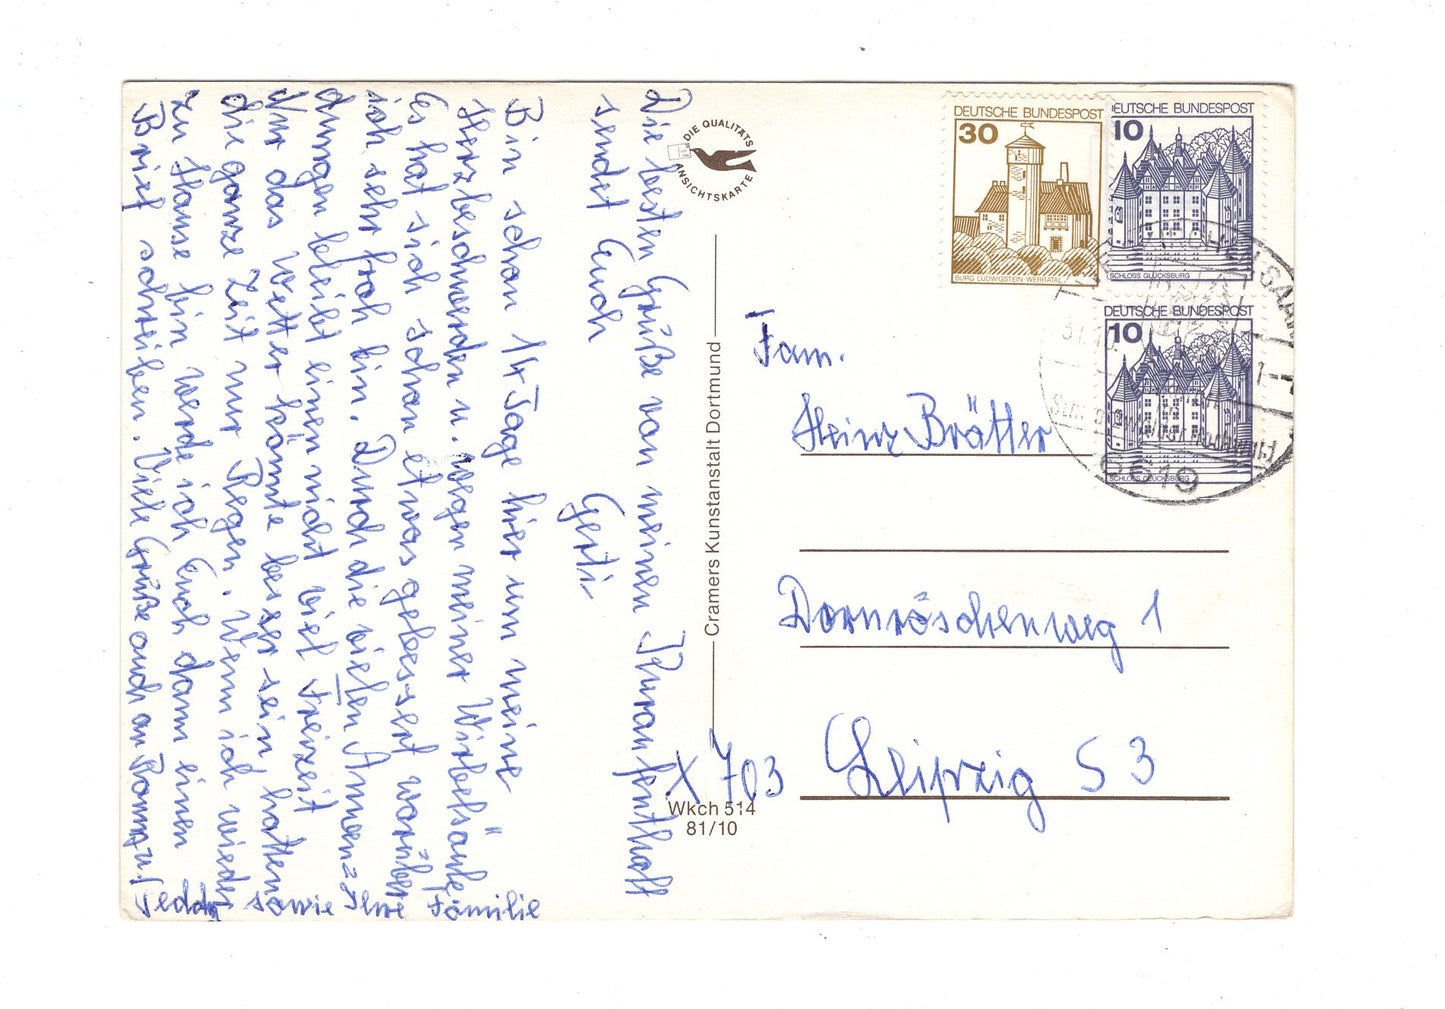 Die besten Grüße von meinen Kuraufenthalt
sendet Euch
Gerti
Bin schon 14 Tage hier um meine
Herzbeschwerden u. wegen meiner Wirbelsäule
es hat sich schon etwas gebessert worüber
ich sehr froh bin. Durch die vielen Anwen=
dungen bleibt einen nicht viel Freizeit
Nur das Wetter könnte besser sein hatten
die ganze Zeit nur Regen. Wenn ich wieder
zu Hause bin werde ich Euch dann einen
Brief schreiben. Viele Grüße auch an
Teddy sowie Ihre Familie
DIE QUALITÄTS
ANSICHTSKARTE
Cramers Kunstanstalt Dortmund
Wkch 514
81/10
DEUTSCHE BUNDESPOST
30
BURG LUDWIGSTEIN WERRATAL
DEUTSCHE BUNDESPOST
10
SCHLOSS GLÜCKSBURG
DEUTSCHE BUNDESPOST
10
SCHLOSS GLÜCKSBURG
6619
Fam.
Heinz Brätter
Dornröschenweg 1
X 703 Leipzig S 3